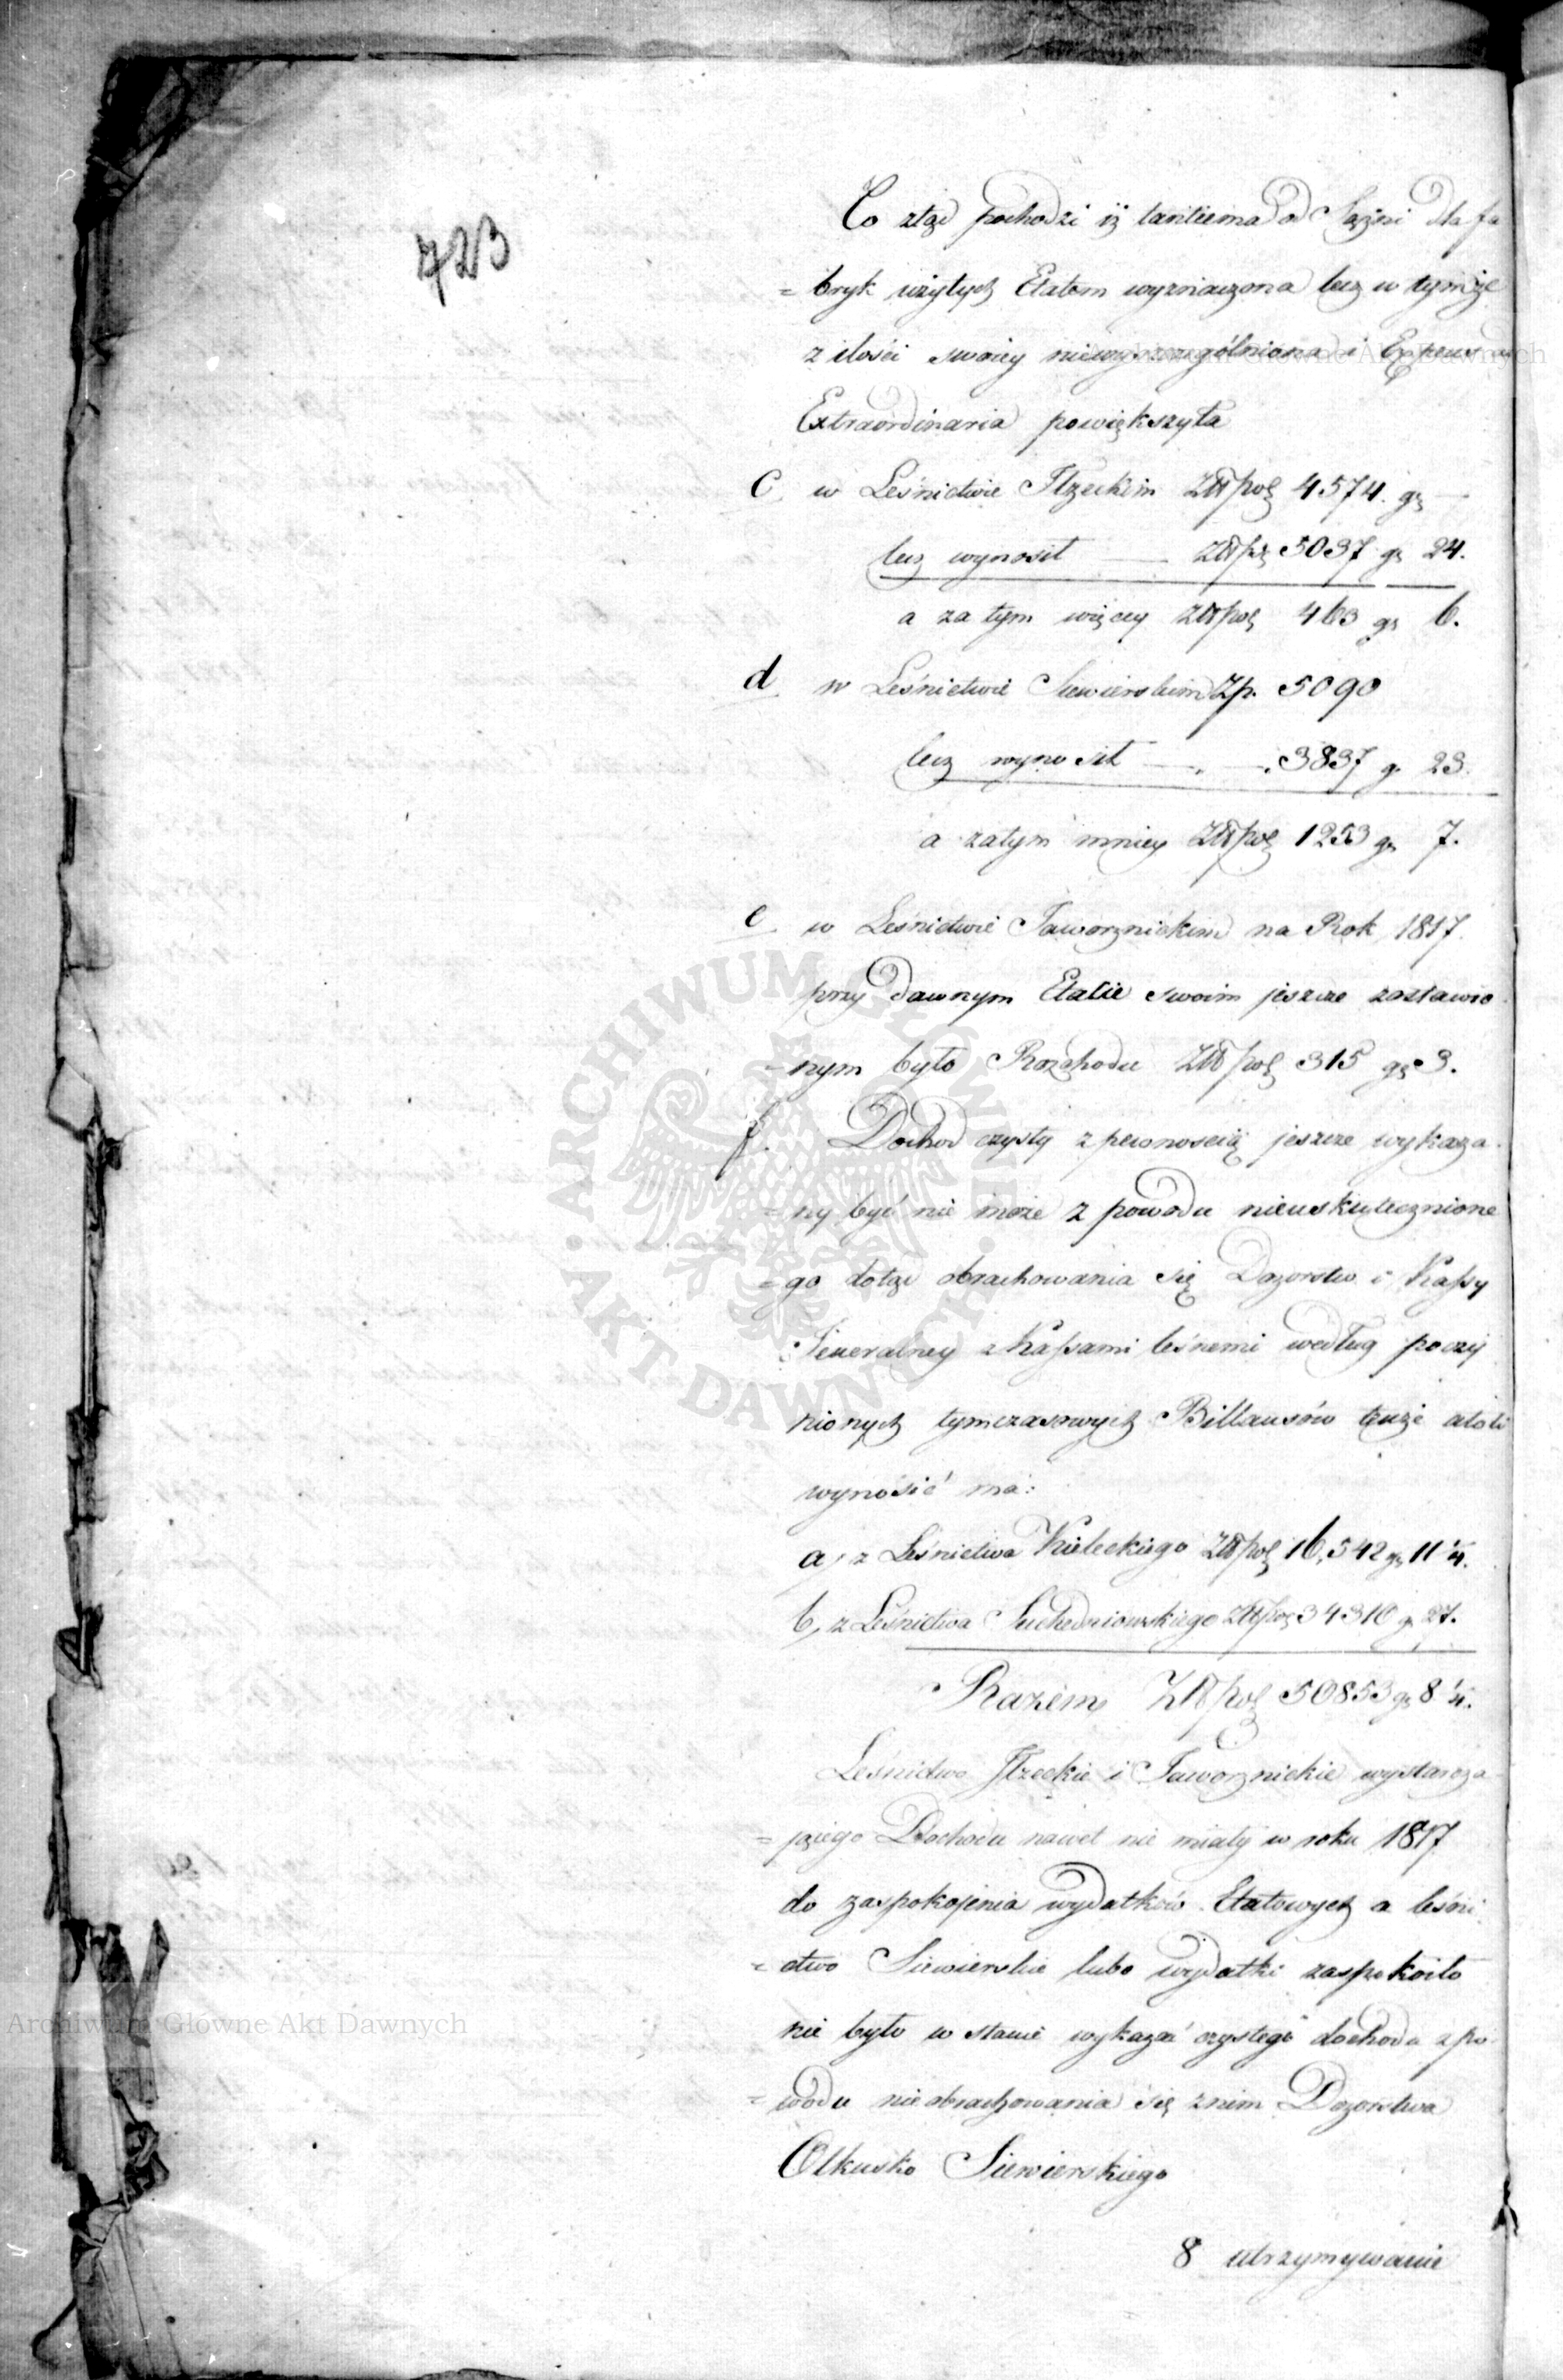 723
Co ztąd pochodzi iż tantiema od Sążni dla fa
= bryk użytych Etatem wyznaczona lecz w tymże
z ilości swoiey niewyszczególniona i Expens
Extraordinaria powiększyła
c, w Leśnictwie Iłzeckim Złłpol 4574. gr —
lecz wynosił — Złłpol 5037 gr 24.
a za tym więcey Złłpol 463 gr 6.
d w Leśnictwie Siewierskim Zp. 5090
lecz wynosił — . — . 3837 gr 23.
a zatym mniey Złłpol 1253 gr 7.
e, w Leśnictwie Jaworznickim na Rok 1817.
przy dawnym Etatie swoim jeszcze zostawio
= nym było Rozchodu Złłpol 315 gr 3.
f. Dochod czysty z pewnoscią jeszcze wykaza
= ny być nie może z powodu nieuskutecznione
= go dotąd obrachowania się Dozorstw i Kassy
Jeneralney z Kassami leśnemi według poczy
nionych tymczasowych Billansów tenże atoli
wynosić ma:
a, z Leśnictwa Kieleckiego Złłpol 16,542 gr 11 1/4.
b, z Leśnictwa Suchedniowskiego Złłpol 34310 gr 27.
Razem Złłpol 50853 gr 8 1/4.
Leśnictwo Iłzeckie i Jaworznickie wystarcza
= jącego Dochodu nawet nie miały w roku 1817
do zaspokojenia wydatków Etatowych a leśni
= ctwo Siewierskie lubo wydatki zaspokoiło
nie było w stanie wykazać czystego dochodu z po
= wodu nieobrachowania się z nim Dozorstwa
Olkusko Siewierskiego
8 utrzymywanie
Archiwum Główne Akt Dawnych
ARCHIWUM GŁÓWNE · AKT DAWNYCH ·
Archiwum Główne Akt Dawnych